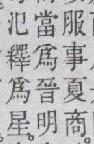 服事夏商。
當爲晉明
氾釋爲星。